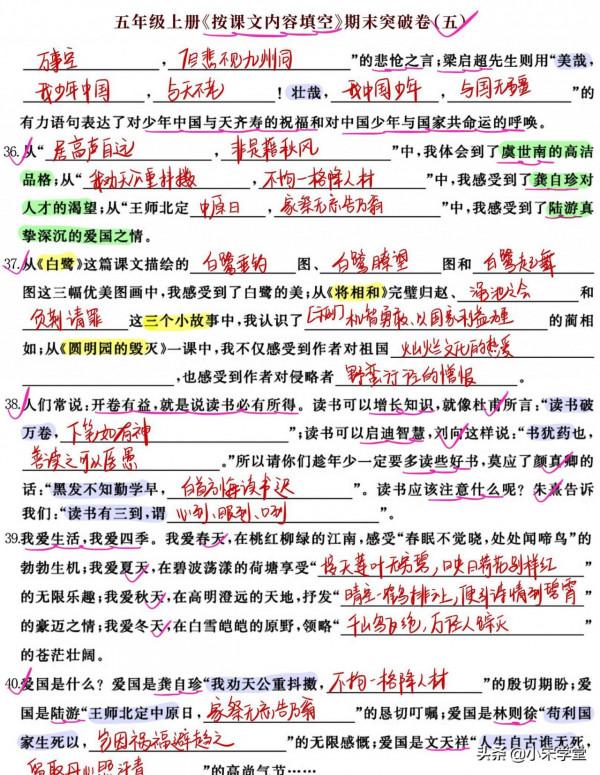 五年级上册《按课文内容填空》期末突破卷(五)
万事空，但悲不见九州同”的悲怆之言;梁启超先生则用“美哉，
我少年中国，与天不老！壮哉，我中国少年，与国无疆”的
有力语句表达了对少年中国与天齐寿的祝福和对中国少年与国家共命运的呼唤。
36.从“居高声自远，非是藉秋风”中,我体会到了虞世南的高洁
品格;从“我劝天公重抖擞，不拘一格降人材”中,我感受到了龚自珍对
人才的渴望;从“王师北定中原日，家祭无忘告乃翁”中,我感受到了陆游真
挚深沉的爱国之情。
37.从《白鹭》这篇课文描绘的白鹭垂钓图、白鹭瞭望图和白鹭起舞
图这三幅优美图画中,我感受到了白鹭的美;从《将相和》完璧归赵、渑池之会和
负荆请罪这三个小故事中,我认识了机智勇敢、以国家利益为重的蔺相
如;从《圆明园的毁灭》一课中,我不仅感受到作者对祖国灿烂文化的热爱
,也感受到作者对侵略者野蛮行径的憎恨。
38.人们常说:开卷有益,就是说读书必有所得。读书可以增长知识,就像杜甫所言:“读书破
万卷,下笔如有神”;读书可以启迪智慧,刘向这样说:“书犹药也,
善读之可以医愚。”所以请你们趁年少一定要多读些好书,莫应了颜真卿的
话:“黑发不知勤学早,白首方悔读书迟”。读书应该注意什么呢？朱熹告诉
我们:“读书有三到,谓心到、眼到、口到”。
39.我爱生活,我爱四季。我爱春天,在桃红柳绿的江南,感受“春眠不觉晓,处处闻啼鸟”的
勃勃生机;我爱夏天,在碧波荡漾的荷塘享受“接天莲叶无穷碧,映日荷花别样红”
的无限乐趣;我爱秋天,在高明澄远的天地,抒发“晴空一鹤排云上,便引诗情到碧霄”
的豪迈之情;我爱冬天,在白雪皑皑的原野,领略“千山鸟飞绝,万径人踪灭”
的苍茫壮阔。
40.爱国是什么？爱国是龚自珍“我劝天公重抖擞,不拘一格降人材”的殷切期盼;爱
国是陆游“王师北定中原日,家祭无忘告乃翁”的恳切叮嘱;爱国是林则徐“苟利国
家生死以,岂因祸福避趋之”的无限感慨;爱国是文天祥“人生自古谁无死,
留取丹心照汗青”的高尚气节……
头条@小宋学堂